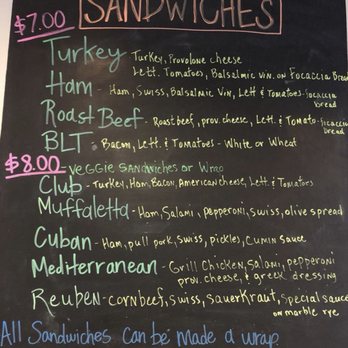 SANDWICHES
$7.00
Turkey - Turkey, Provolone cheese
Lett. Tomatoes, Balsalmic vin. on Focaccia Bread
Ham - Ham, Swiss, Balsalmic Vin, Lett & Tomatoes - focaccia
bread
Roast Beef - Roast beef, prov. cheese, Lett. & Tomato - focaccia
bread
BLT - Bacon, Lett. & Tomatoes - White or Wheat
$8.00 veggie sandwiches or Wrap
Club - Turkey, Ham, Bacon, American cheese, Lett. & Tomatoes
Muffaletta - Ham, Salami, pepperoni, swiss, olive spread
Cuban - Ham, pull pork, swiss, pickles, cumin sauce
Mediterranean - Grill Chicken, Salami, pepperoni
prov. cheese, & greek dressing
Reuben - corn beef, swiss, sauerkraut, special sauce
on marble rye
All Sandwiches can be made a wrap